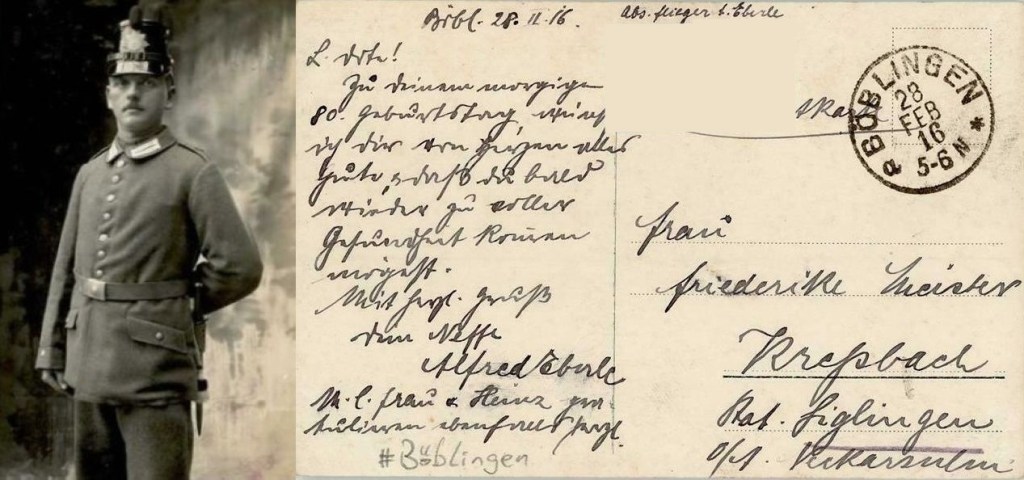 Böbl. 28.II.16.
Abs. Flieger A. Eberle
L. Dote!
Zu deinem morgige
80. Geburtstag, wünsch
ich dir von Herzen alles
Gute, daß du bald
wieder zu voller
Gesundheit kommen
mögest.
Mit hrzl. Gruß
dein Neffe
Alfred Eberle
M. l. Frau & Heinz gra-
tulieren ebenfalls hrzl.
#Böblingen
BÖBLINGEN
28
FEB
16
5-6 N
Frau
Friederike Meister
Kreßbach
Stat. Siglingen
O/A. Neckarsulm